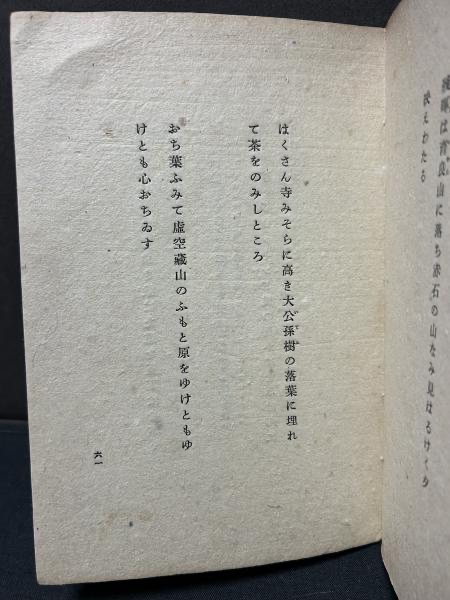 は青良山に落ち赤石の山なみ見はるけく夕
映えわたる
はくさん寺みそらに高き大公孫樹の落葉に埋れ
て茶をのみしところ
おち葉ふみて虚空藏山のふもと原をゆけともゆ
けとも心おちゐす
六一